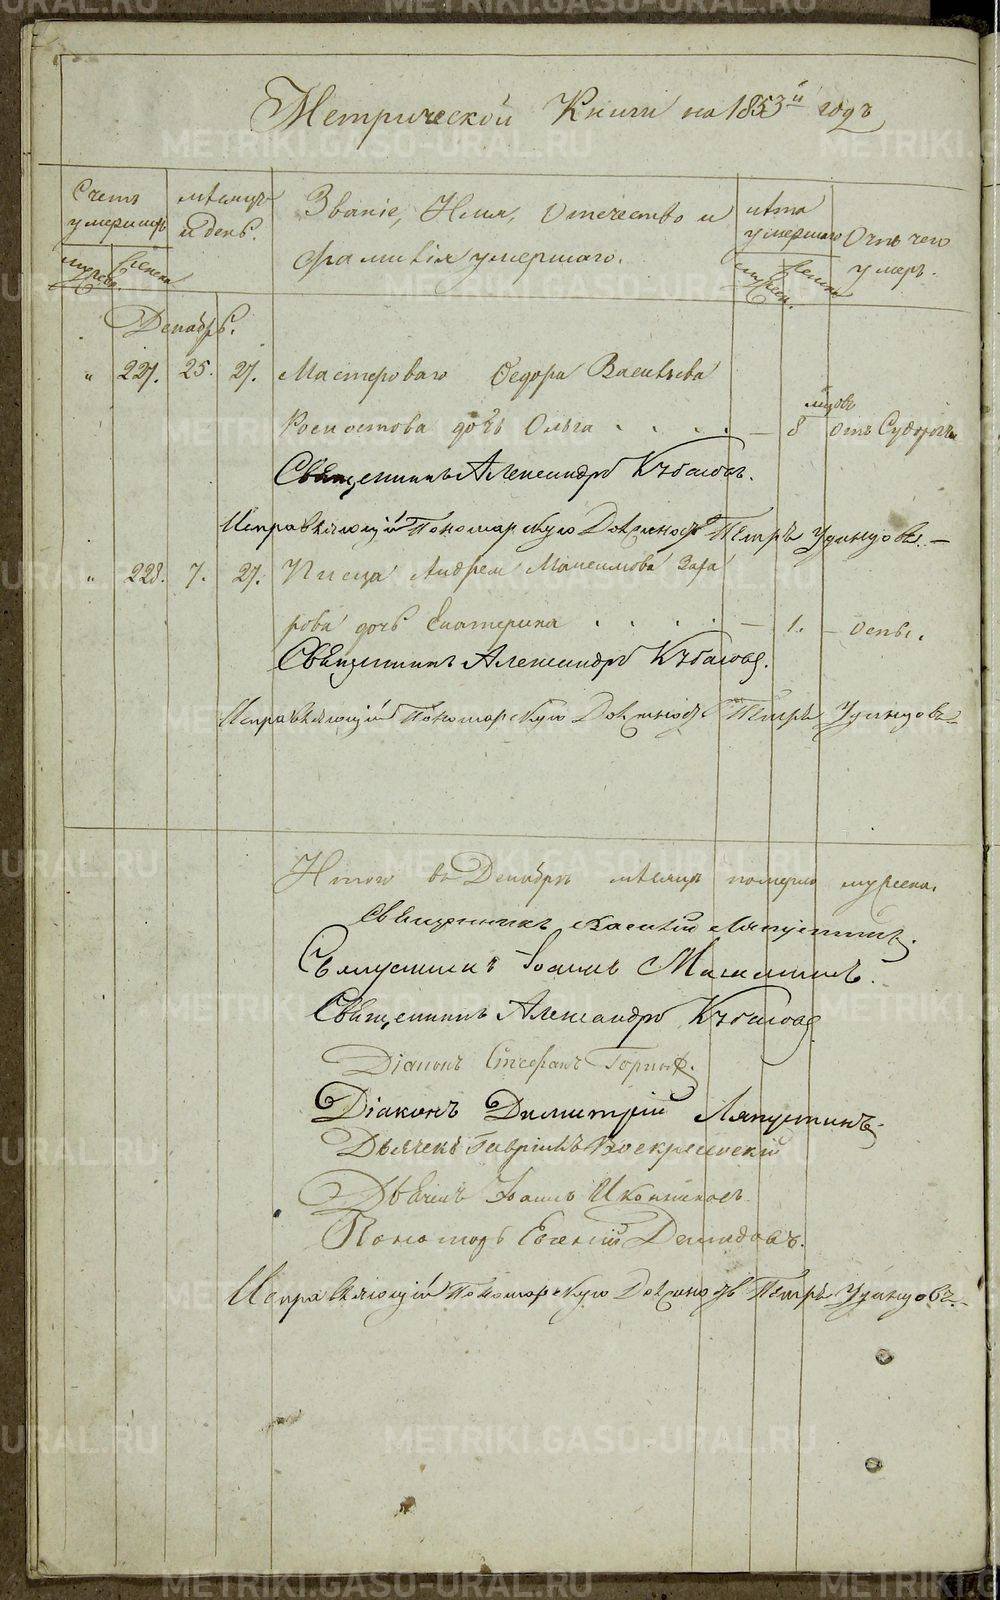 Метрической Книги на 1853й годъ
Счетъ умершихъ
мѣсяцъ и день.
Званіе, Имя, Отечество и
фамилія умершаго.
лѣта умершаго
Отъ чего умеръ.
мужеска
женска
мужеск.
женска
Декабрь.
" 227. 25. 27. Мастероваго Ѳедора Васильева
мѣсяцовъ
дочь Ольга . . . . — 8 Отъ Судорогъ
Священникъ Александръ
Исправляющій Пономарскую Должность Петръ Удинцовъ. —
" 228. 7. 27. Писца Андрея Максимова Заха
рова дочь Екатерина . . . . — 1. — Оспы.
Священникъ Александръ
Исправляющій Пономарскую Должность Петръ Удинцовъ
Итого въ Декабрѣ мѣсяцѣ померло мужеска.
Священникъ Василій Ляпустинъ.
Священникъ Іоаннъ
Священникъ Александръ
Діаконъ Стефанъ Горныхъ.
Діаконъ Димитрій Ляпустинъ
Дьячекъ Гавріилъ Воскресенскій
Дьячекъ Іоаннъ Иконниковъ.
Пономарь Евгеній Демидовъ.
Исправляющій Пономарскую Должность Петръ Удинцовъ.
METRIKI.GASO-URAL.RU